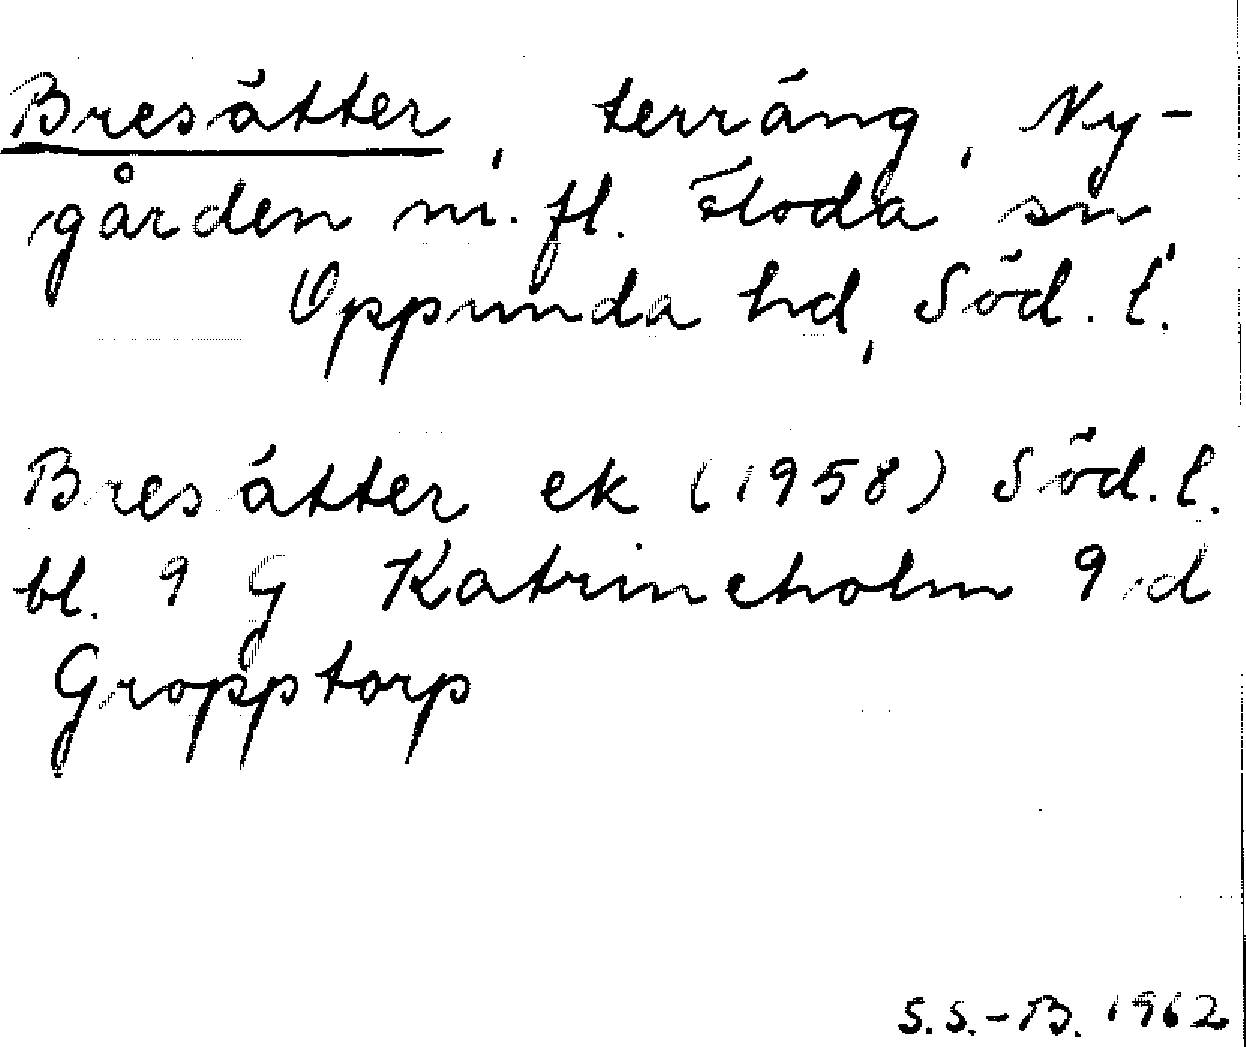 Bresätter, terräng, Ny-
gården m. fl. Floda sn,
Oppunda hd, Söd. l.
Bresätter ek (1958) Söd. l.
bl. 9 G Katrineholm 9 d
Gropptorp
S.S.-B. 1962